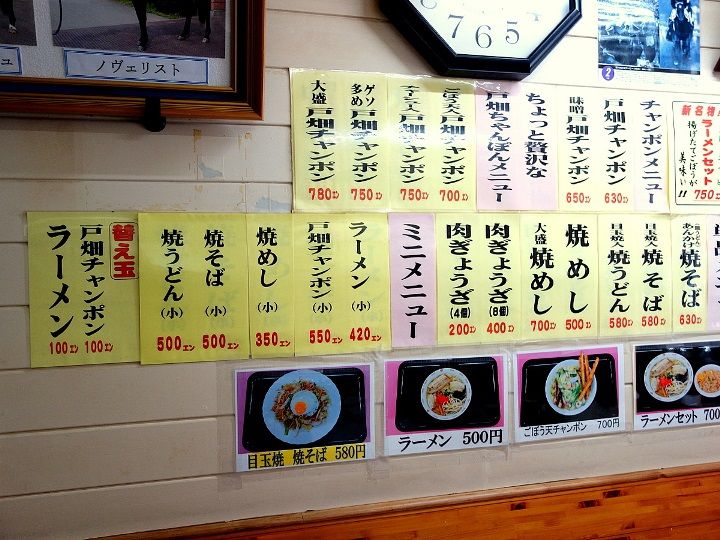 ノヴェリスト
8 7 6 5
2
新名物
ラーメンセット
揚げたてごぼうが
美味い!!
750エン
チャンポンメニュー
戸畑チャンポン
630エン
味噌
戸畑チャンポン
650エン
ちょっと贅沢な
戸畑ちゃんぽんメニュー
ごぼう天入
戸畑チャンポン
700エン
戸畑チャンポン
750エン
ゲソ
多め
戸畑チャンポン
750エン
大盛
戸畑チャンポン
780エン
あんかけ
焼そば
630エン
目玉焼入
焼そば
580エン
目玉焼入
焼うどん
580エン
焼めし
500エン
大盛
焼めし
700エン
肉ぎょうざ
(8個)
400エン
肉ぎょうざ
(4個)
200エン
ミニメニュー
ラーメン
(小)
420エン
戸畑チャンポン
(小)
550エン
焼めし
(小)
350エン
焼そば
(小)
500エン
焼うどん
(小)
500エン
替え玉
戸畑チャンポン
100エン
ラーメン
100エン
目玉焼 焼そば 580円
ラーメン 500円
ごぼう天チャンポン 700円
ラーメンセット 700